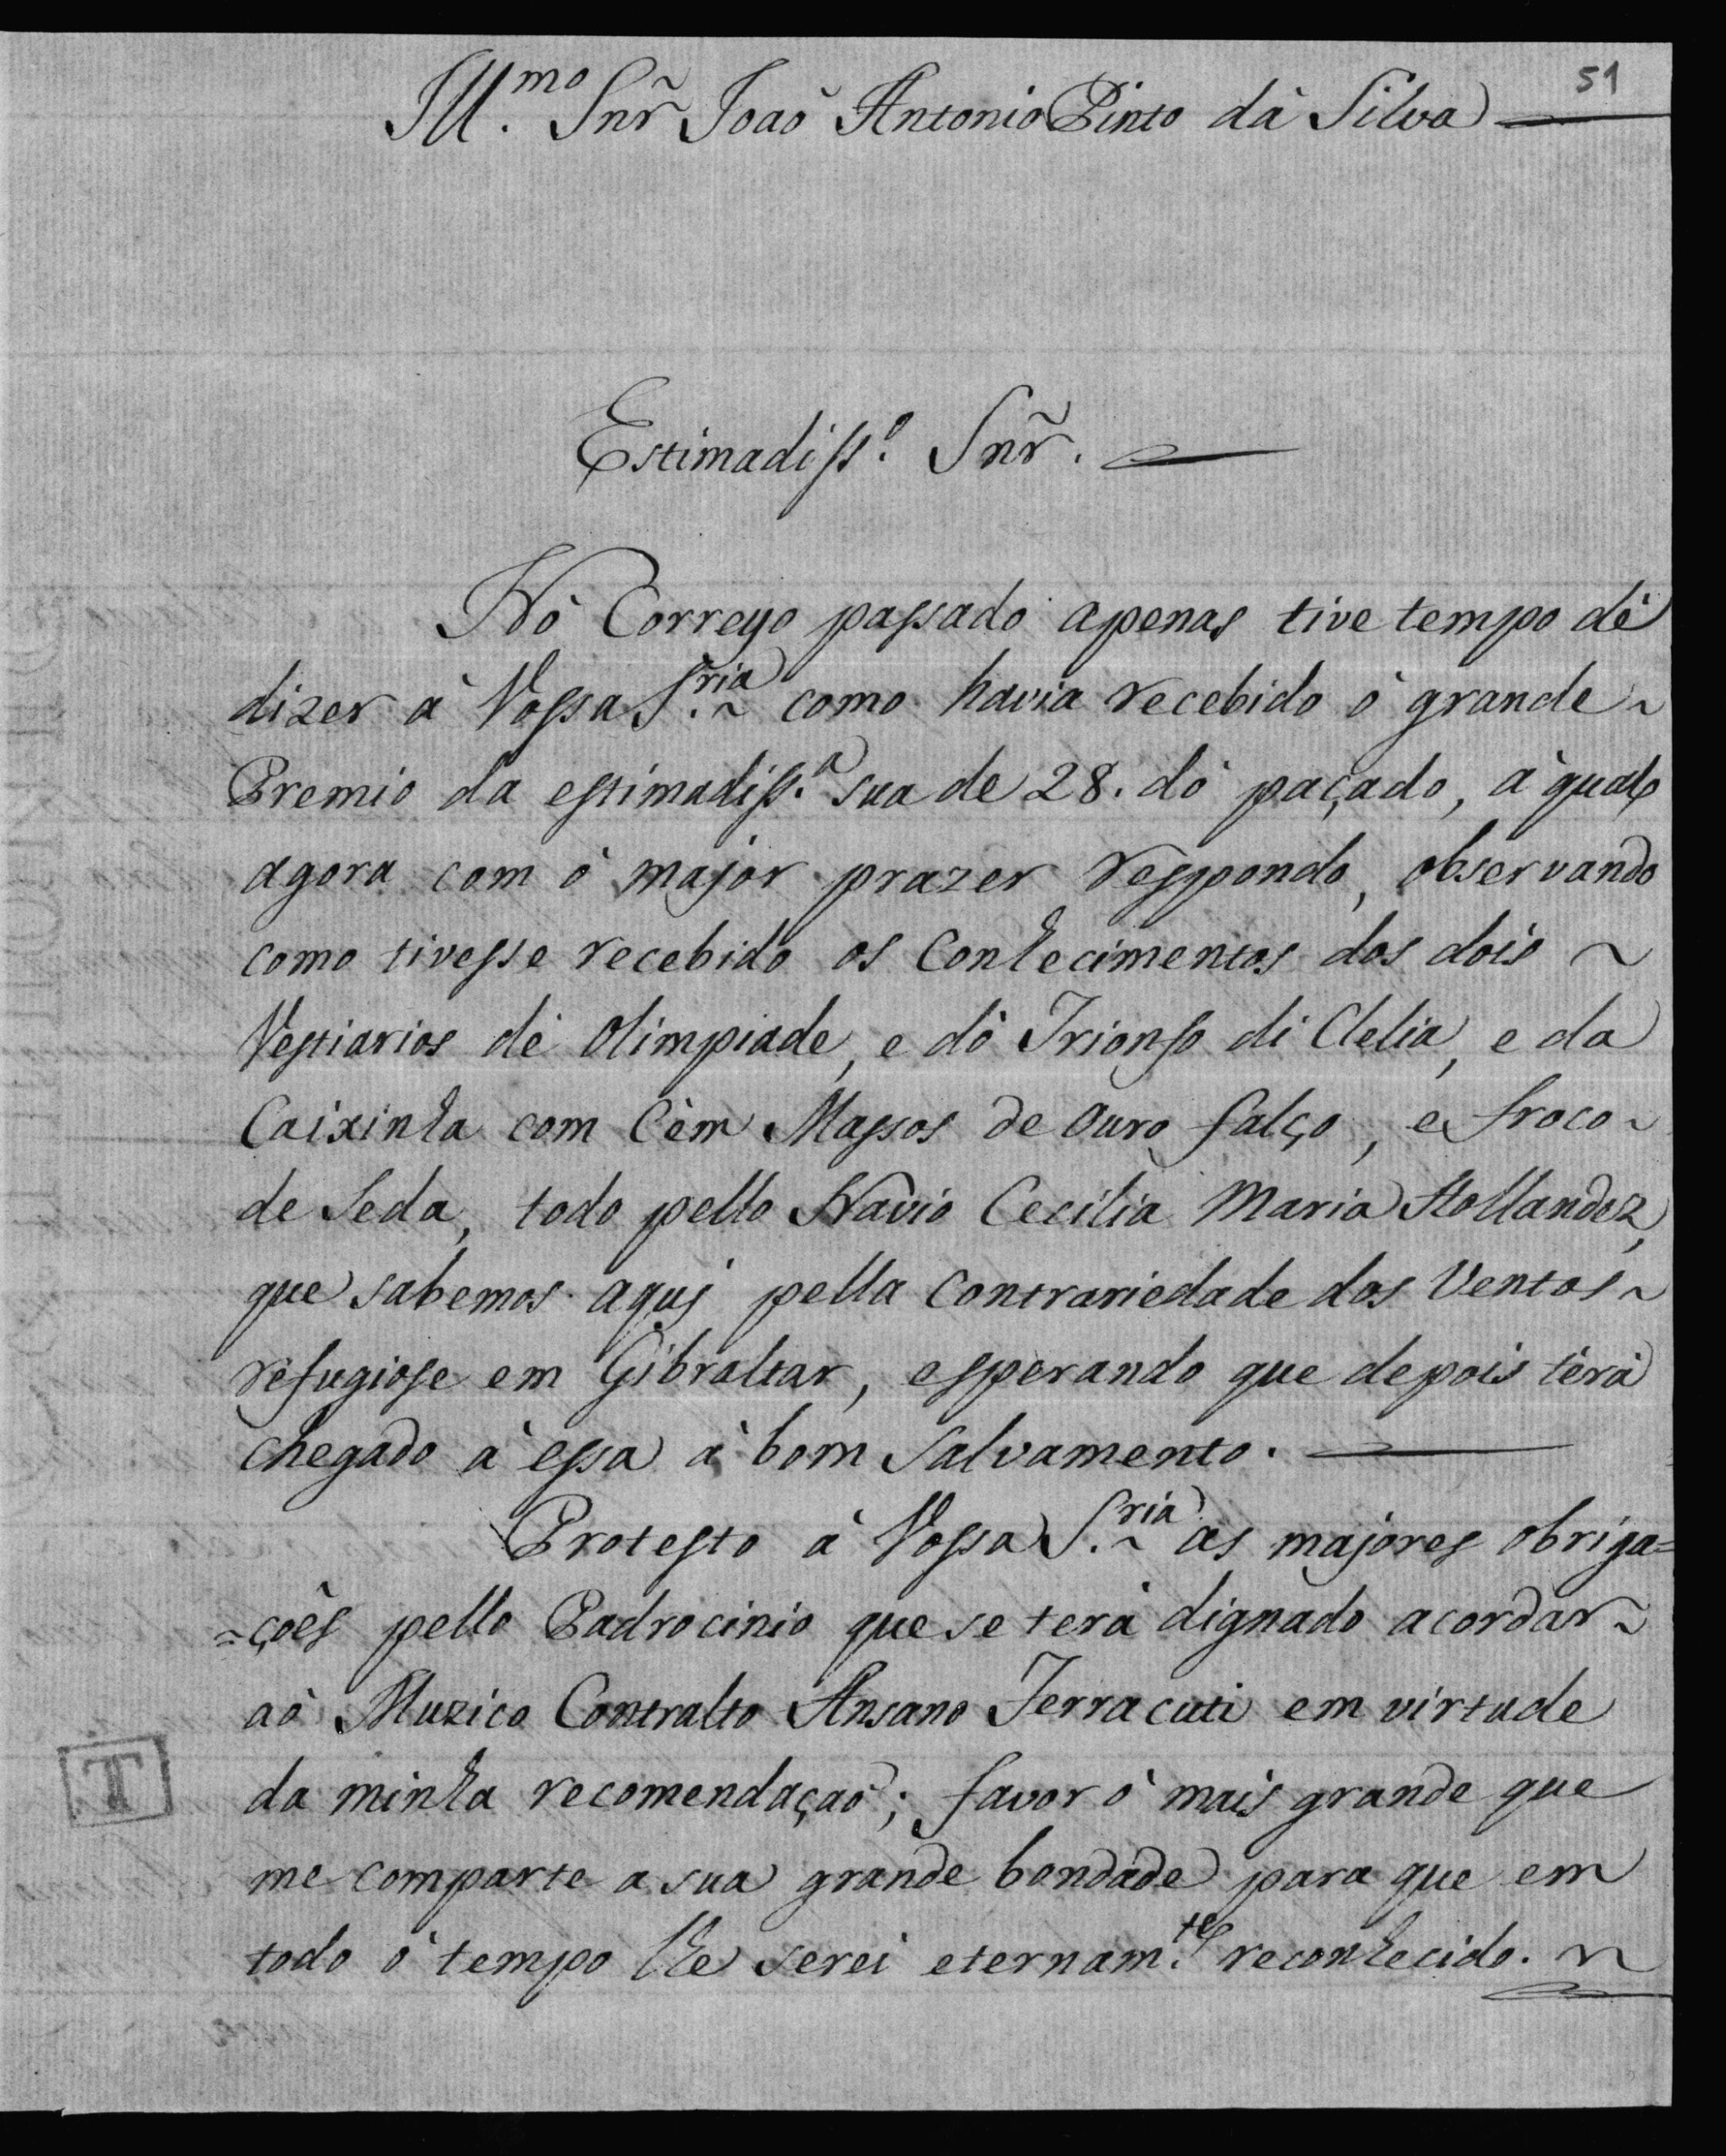 51
Ill.mo Snr̃ Joaõ Antonio Pinto dà Silva
Estimadiss.o Snr̃.
Nò Correyo passado apenas tive tempo dè
dizer à Vossa S.ria como havia recebido ò grande
Premio da estimadiss.a sua de 28. dò paçado, à qual
agora com ò major prazer respondo, observando
como tivesse recebido os Conhecimentos dos dois
Vestiarios dè Olimpiade, e dò Trionfo di Clelia, e da
Caixinha com Cèm Massos de Ouro falço, e froco
de Seda, todo pello Navio Cecilia Maria Hollandez,
que sabemos aquj pella Contrariedade dos Ventos
refugiose em Gibraltar, esperando que depois tèrà
chegado à essa à bom Salvamento.
Protesto à Vossa S.ria as majores obriga=
=çoès pello Padrocinio que se terà dignado acordar
aò Muzico Contralto Ansano Ferracuti em virtude
da minha recomendaçaõ; favor ò mais grande que
me comparte a sua grande bondade para que em
todo ò tempo lhe serei eternam.te reconhecido.
T